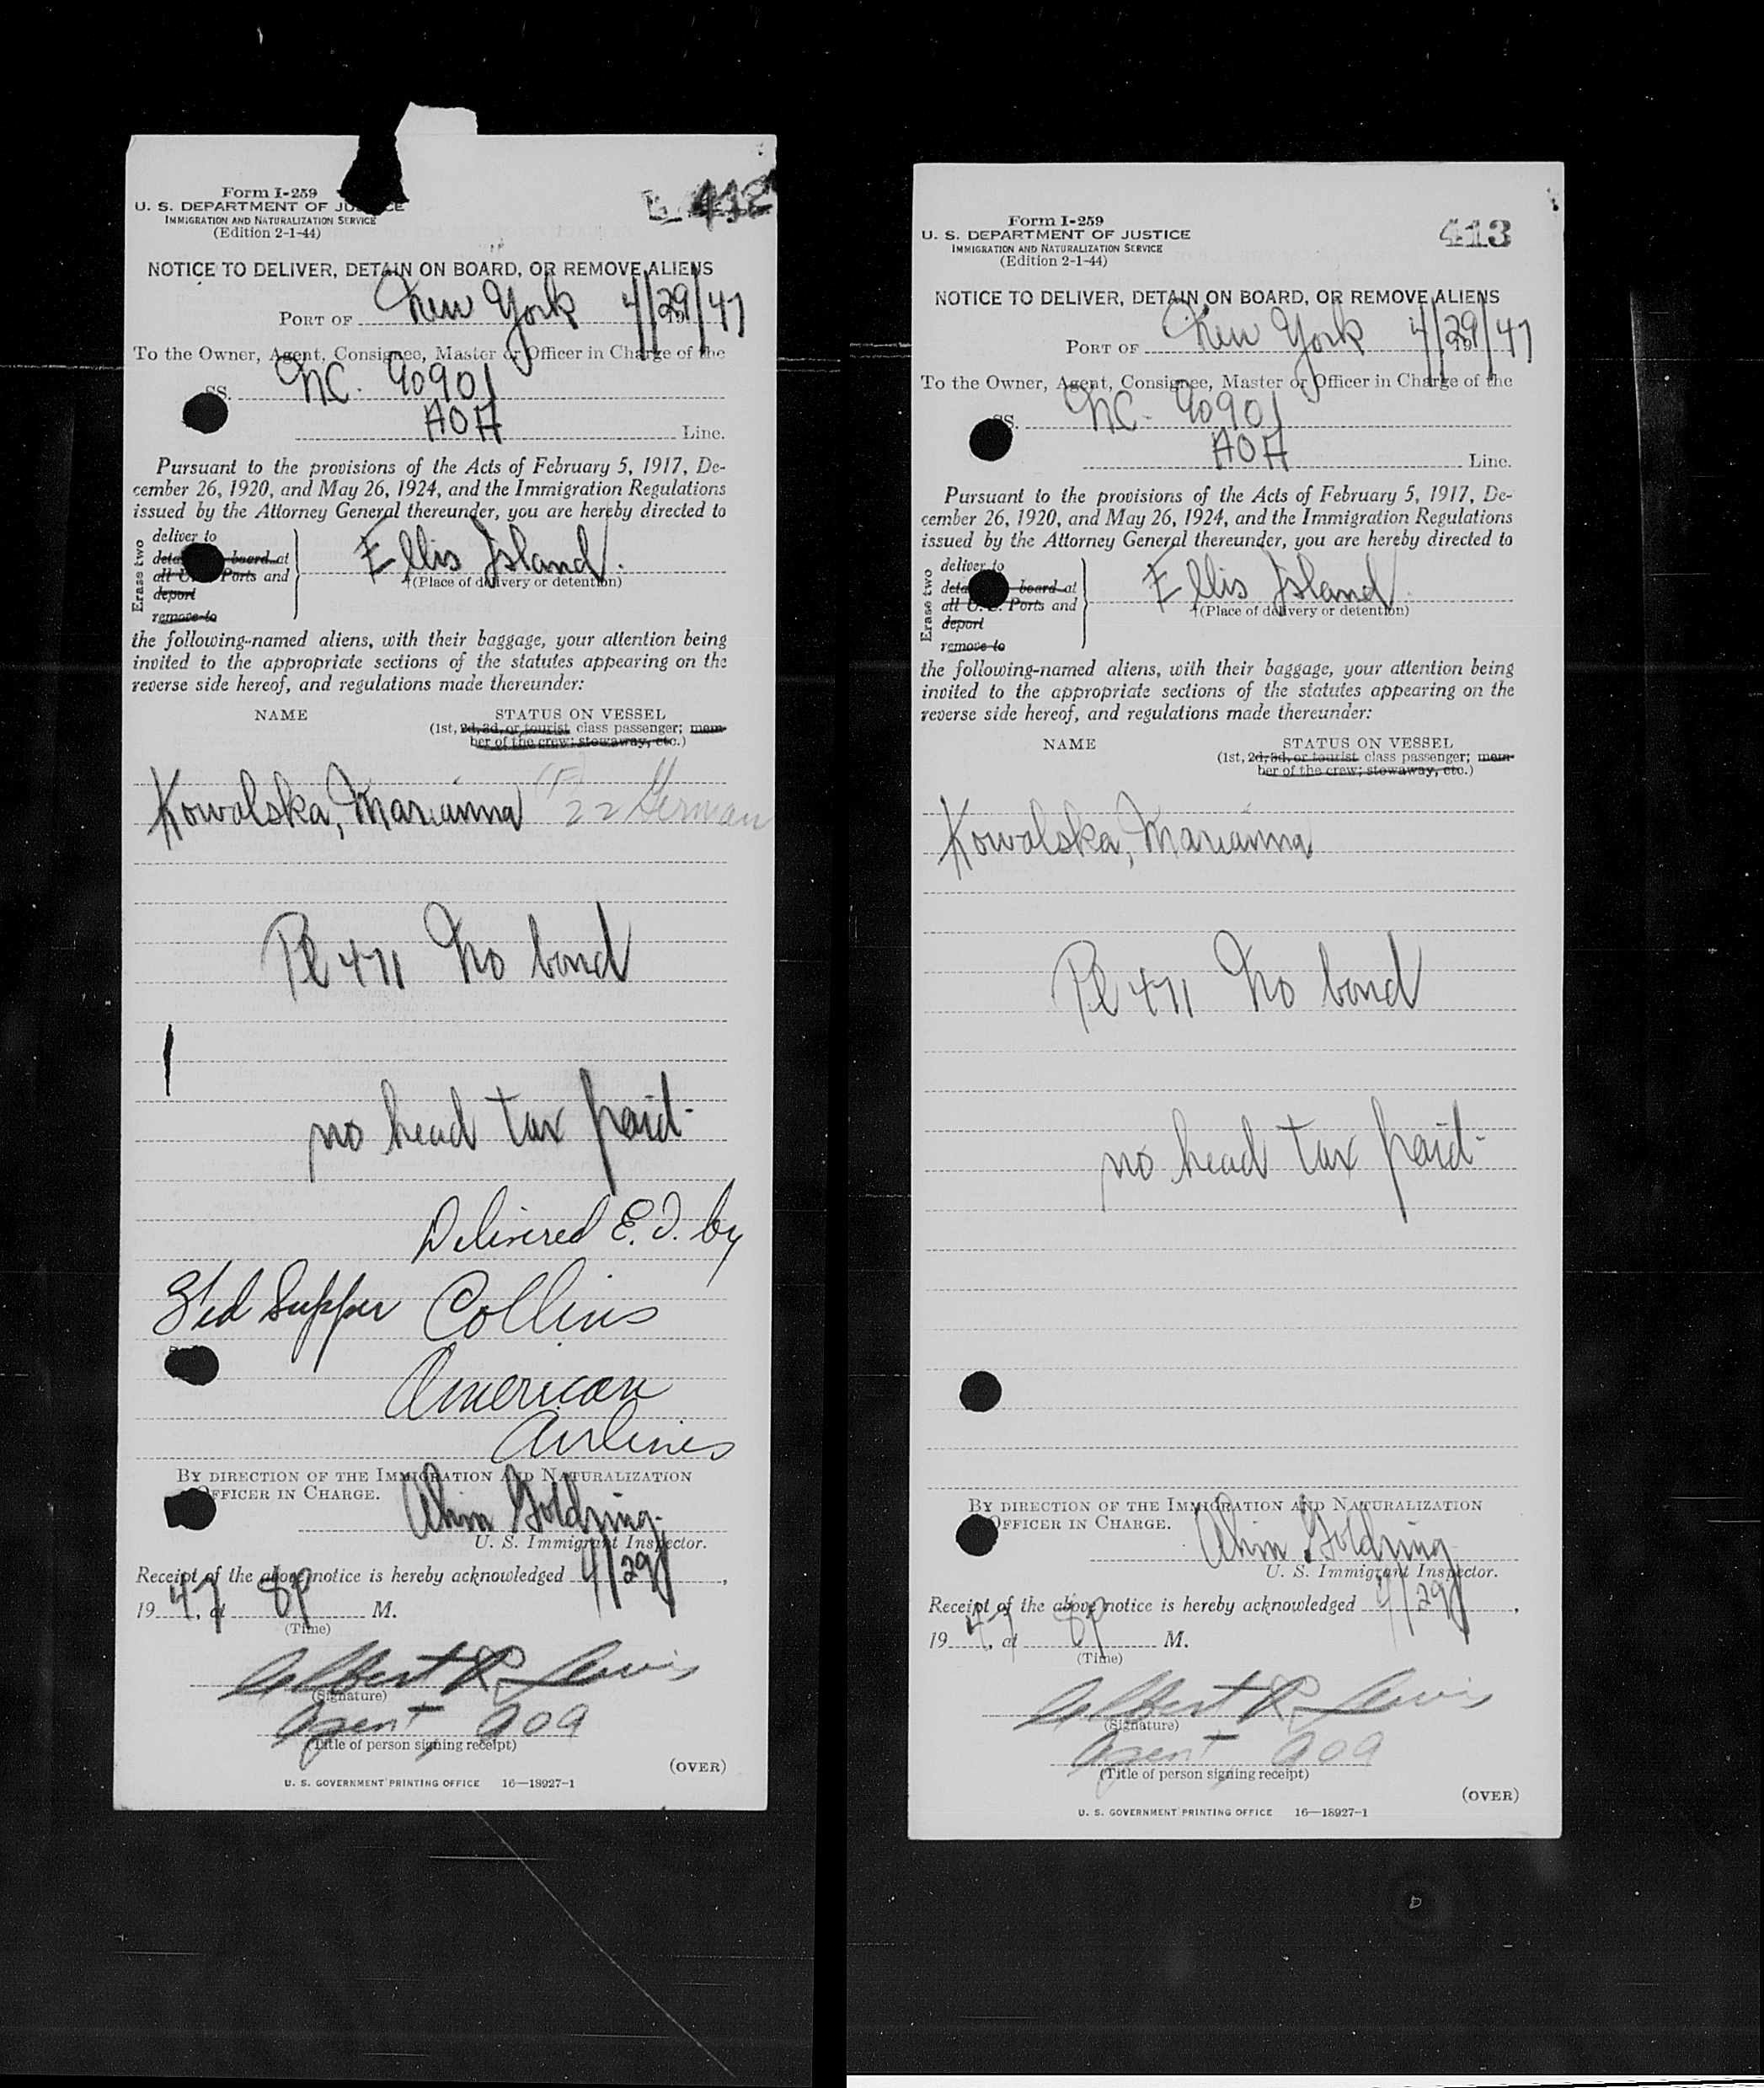 Form I-259
U. S. DEPARTMENT OF JUSTICE
IMMIGRATION AND NATURALIZATION SERVICE
(Edition 2-1-44)
NOTICE TO DELIVER, DETAIN ON BOARD, OR REMOVE ALIENS
PORT OF New York 4/29/47
To the Owner, Agent, Consignee, Master or Officer in Charge of the
SS. NC- 90901
AOA Line.
Pursuant to the provisions of the Acts of February 5, 1917, De-
cember 26, 1920, and May 26, 1924, and the Immigration Regulations
issued by the Attorney General thereunder, you are hereby directed to
Erase two
deliver to
board at
all U. Ports and
deport
remove to
Ellis Island.
(Place of delivery or detention)
the following-named aliens, with their baggage, your attention being
invited to the appropriate sections of the statutes appearing on the
reverse side hereof, and regulations made thereunder:
NAME STATUS ON VESSEL
(1st, 2d, 3d, or tourist class passenger; mem-
ber of the crew; stowaway, etc.)
Kowalska, Marianna (F) 22 German
471 No bond
no head tax paid-
Delivered E.I. by
Supper Collins
American
Airlines
BY DIRECTION OF THE IMMIGRATION AND NATURALIZATION
OFFICER IN CHARGE.
Goldring
U. S. Immigrant Inspector.
Receipt of the above notice is hereby acknowledged 4/29,
1947, at 8P M.
(Time)
Albert R. Lewis
(Signature)
Agent, AOA
(Title of person signing receipt)
(OVER)
U. S. GOVERNMENT PRINTING OFFICE 16—18927-1
Form I-259
U. S. DEPARTMENT OF JUSTICE
IMMIGRATION AND NATURALIZATION SERVICE
(Edition 2-1-44)
413
NOTICE TO DELIVER, DETAIN ON BOARD, OR REMOVE ALIENS
PORT OF New York 4/29/47
To the Owner, Agent, Consignee, Master or Officer in Charge of the
SS. NC- 90901
AOA Line.
Pursuant to the provisions of the Acts of February 5, 1917, De-
cember 26, 1920, and May 26, 1924, and the Immigration Regulations
issued by the Attorney General thereunder, you are hereby directed to
Erase two
deliver to
board at
all U. Ports and
deport
remove to
Ellis Island.
(Place of delivery or detention)
the following-named aliens, with their baggage, your attention being
invited to the appropriate sections of the statutes appearing on the
reverse side hereof, and regulations made thereunder:
NAME STATUS ON VESSEL
(1st, 2d, 3d, or tourist class passenger; mem-
ber of the crew; stowaway, etc.)
Kowalska, Marianna
471 No bond
no head tax paid-
BY DIRECTION OF THE IMMIGRATION AND NATURALIZATION
OFFICER IN CHARGE.
Goldring
U. S. Immigrant Inspector.
Receipt of the above notice is hereby acknowledged 4/29,
1947, at 8P M.
(Time)
Albert R. Lewis
(Signature)
Agent, AOA
(Title of person signing receipt)
(OVER)
U. S. GOVERNMENT PRINTING OFFICE 16—18927-1